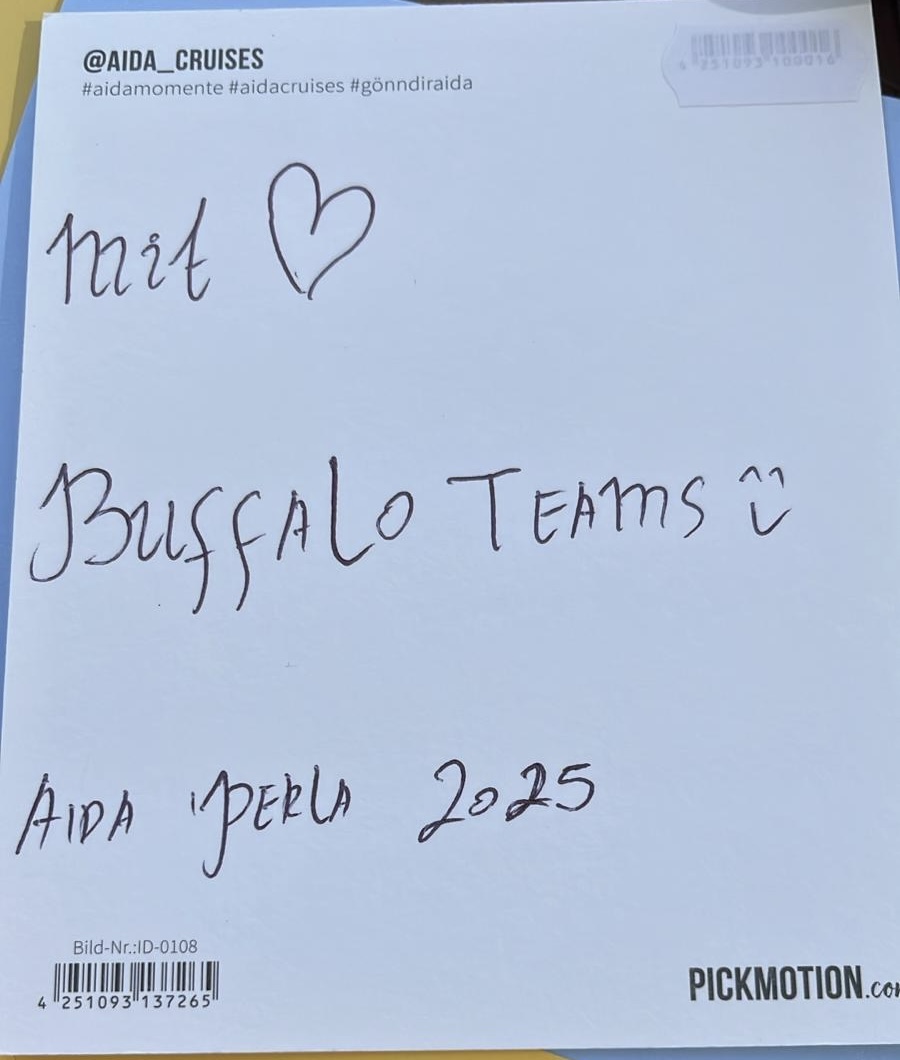 @AIDA_CRUISES
#aidamomente #aidacruises #gönndiraida
4 251093 100016
mit ♡
BUffAlO TEAmS
AIDA PERLA 2025
Bild-Nr.:ID-0108
4 251093 137265
PICKMOTION.co